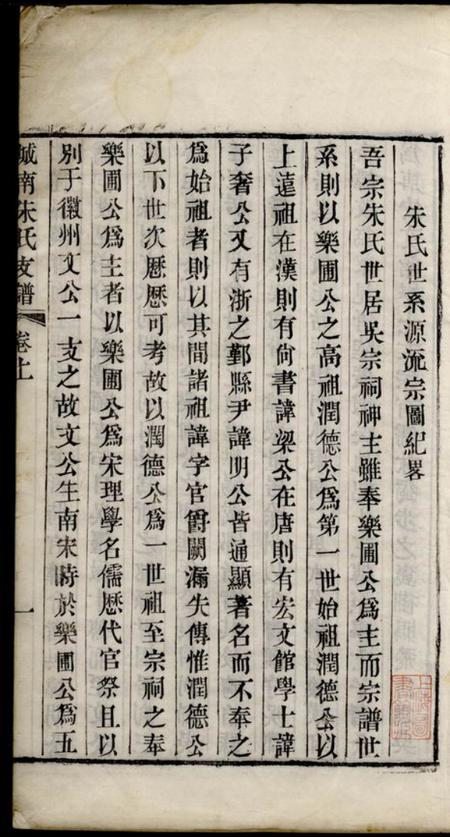 朱氏世系源流宗圖紀畧
吾宗朱氏世居吳宗祠神主雖奉樂圃公爲主而宗譜世
系則以樂圃公之高祖潤德公爲第一世始祖潤德公以
上遠祖在漢則有尙書諱梁公在唐則有宏文館學士諱
子奢公又有浙之鄞縣尹諱明公皆通顯著名而不奉之
爲始祖者則以其間諸祖諱字官爵闕漏失傳惟潤德公
以下世次歷歷可考故以潤德公爲一世祖至宗祠之奉
樂圃公爲主者以樂圃公爲宋理學名儒歷代官祭且以
別于徽州文公一支之故文公生南宋時於樂圃公爲五
城南朱氏支譜 卷上 一
上海圖
書館藏